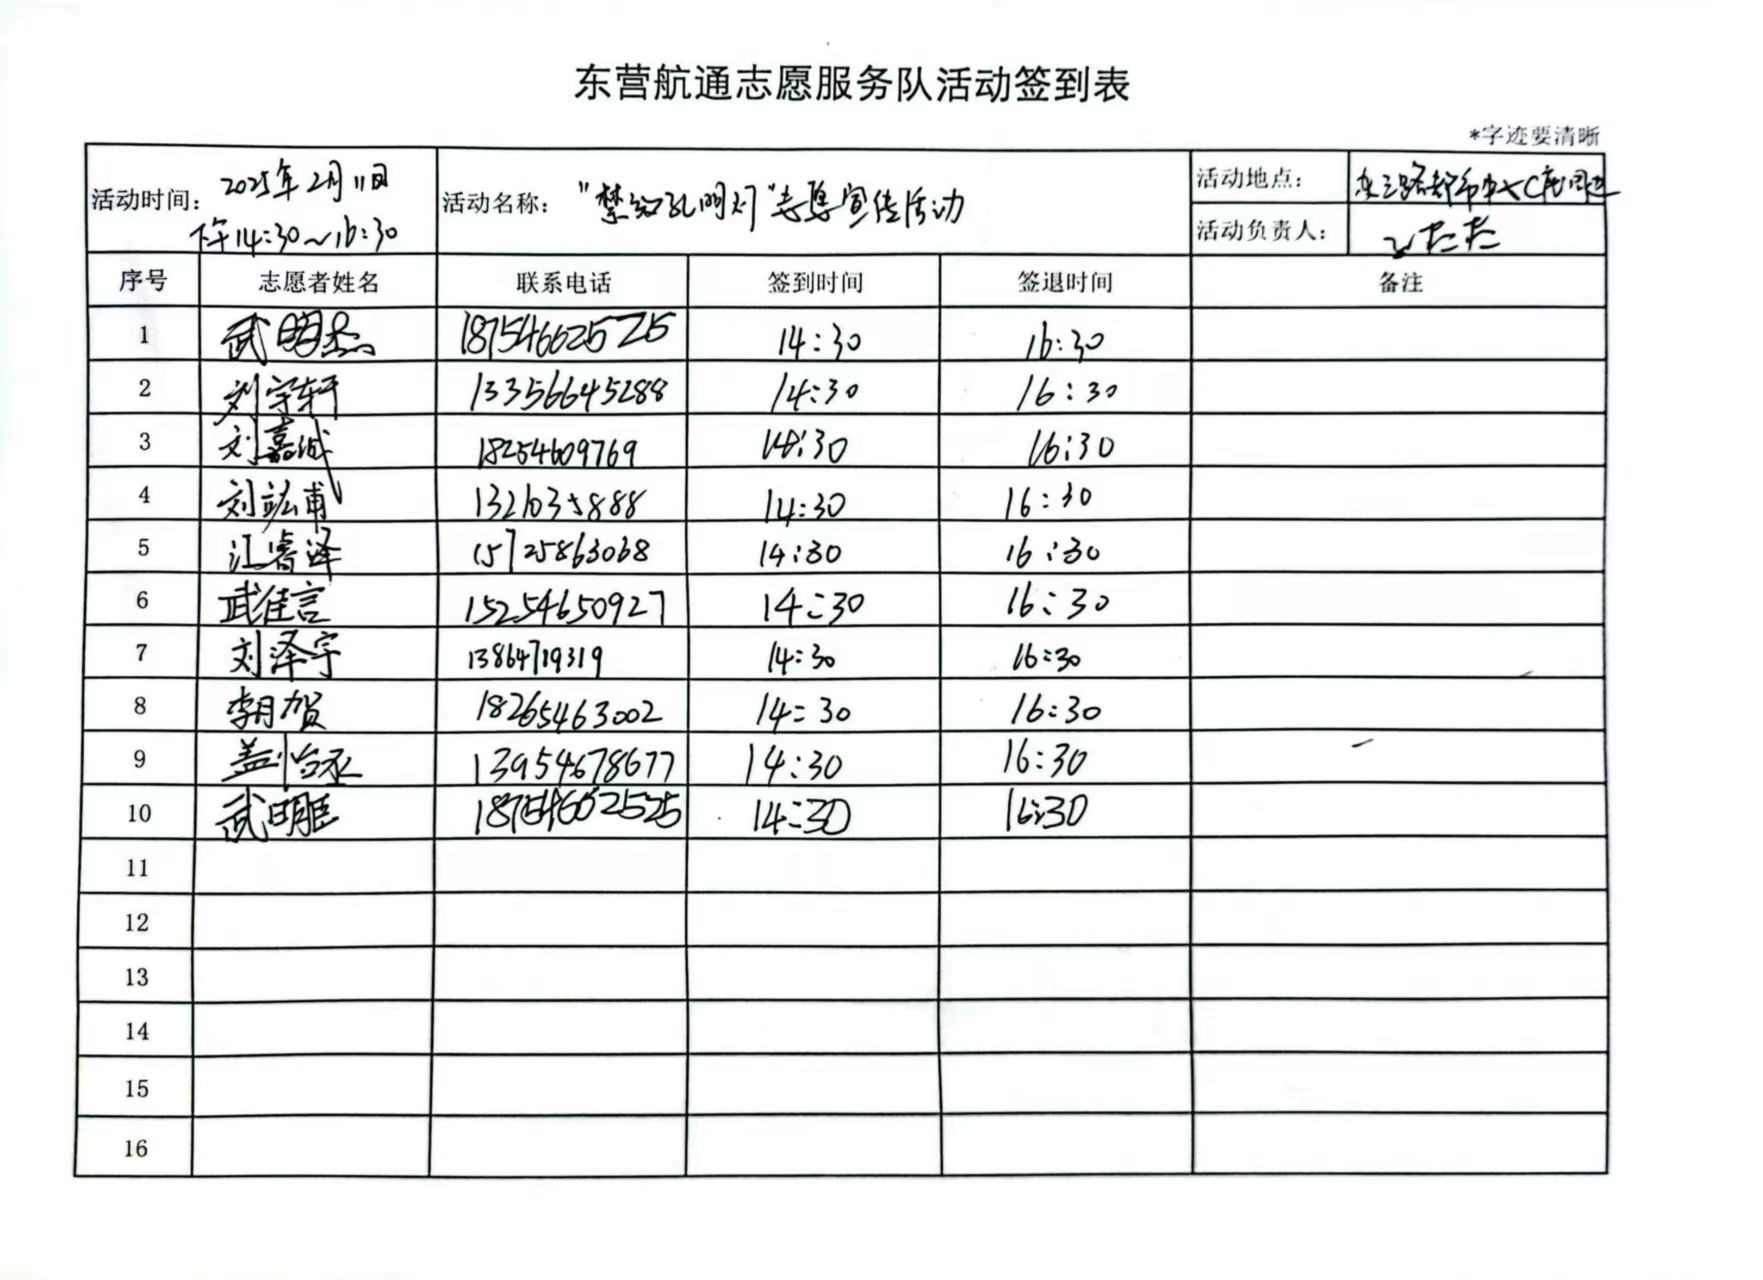 东营航通志愿服务队活动签到表
*字迹要清晰
活动时间: 2025年2月11日
下午14:30~16:30
活动名称: "禁放孔明灯"志愿宣传活动
活动地点:
活动负责人:
序号 志愿者姓名 联系电话 签到时间 签退时间 备注
1 武明杰 18754662525 14:30 16:30
2 刘宇轩 13356645288 14:30 16:30
3 刘嘉诚 18254609769 14:30 16:30
4 刘竑甫 14:30 16:30
5 江睿泽 15725863068 14:30 16:30
6 武佳言 15254650927 14:30 16:30
7 刘泽宇 13864719319 14:30 16:30
8 18265463002 14:30 16:30
9 盖怡丞 13954678677 14:30 16:30
10 武明 14:30 16:30
11
12
13
14
15
16